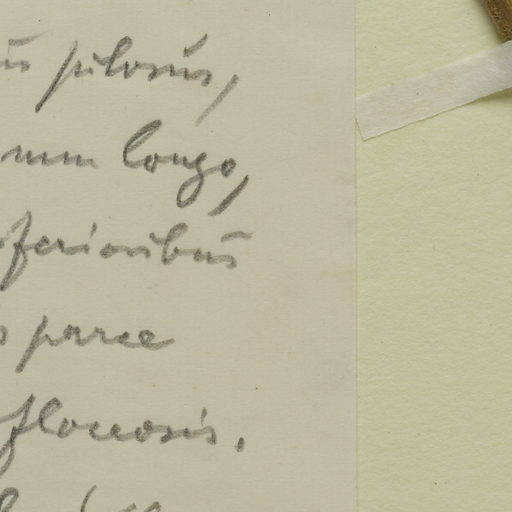 pilosus,
mm longo,
ferioribus
parce
floccosis.